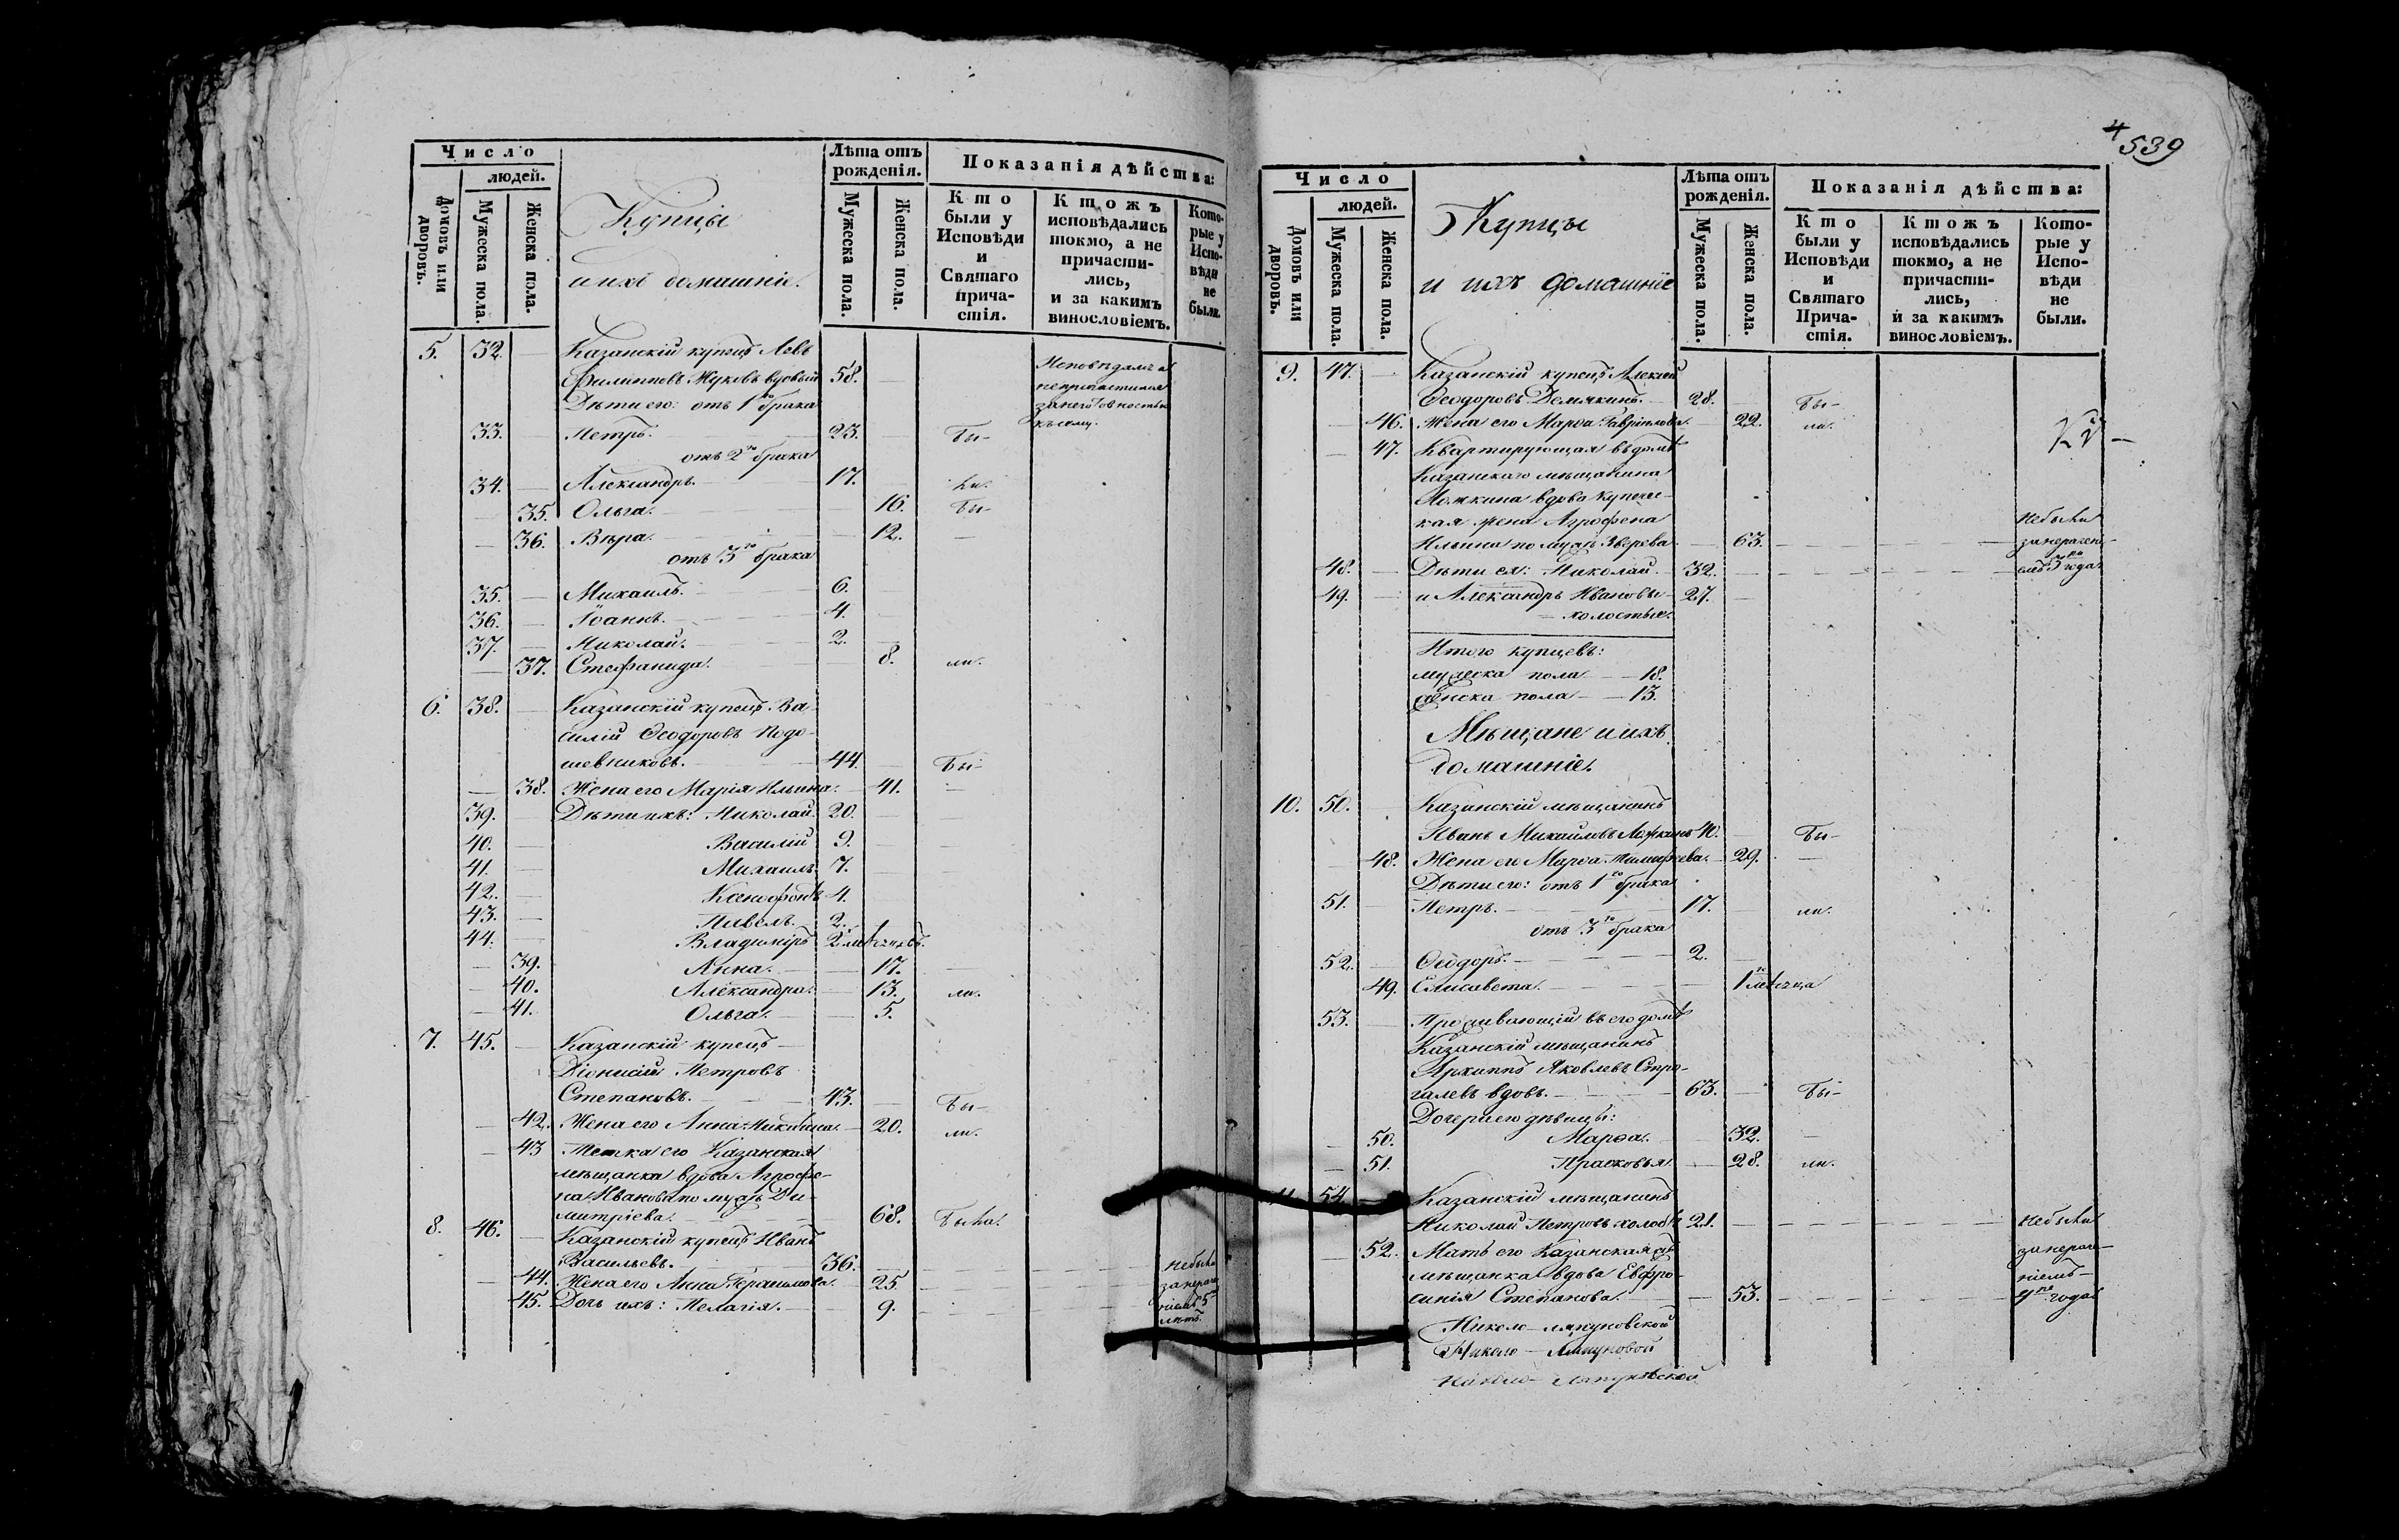 Число
людей.
Домовъ или дворовъ.
Мужеска пола.
Женска пола.
Купцы
и ихъ домашніе.
Лѣта отъ рожденія.
Мужеска пола.
Женска пола.
Показанія дѣйства:
Кто были у Исповѣди и Святаго причастія.
Ктожъ исповѣдались токмо, а не причастились, и за какимъ винословіемъ.
Которые у Исповѣди не были.
5. 32. — Казанскій купецъ Левъ
Филипповъ Жуковъ вдовый 58. —
Исповѣдался
непричастился
Дѣти его: отъ 1го брака
33. — Петръ. — 23. — Бы-
отъ 2го брака
34. — Александръ. — 17. ли.
— 35. Ольга. — 16. Бы-
— 36. Вѣра. — — 12. —
отъ 3го брака
35. — Михаилъ. — 6.
36. — Іоаннъ. — 4.
37. — Николай. — 2. —
— 37. Стефанида. — 8. ли.
6. 38. — Казанскій купецъ Ва-
силій Ѳеодоровъ Подо-
шевниковъ. — 44. — Бы-
— 38. Жена его Марія Ильина. — 41. —
39. — Дѣти ихъ: Николай. 20. —
40. — Василій 9. —
41. — Михаилъ. 7. —
42. — Ксенофонтъ 4. —
43. — Павелъ. 2. —
44. — Владиміръ 2. мѣсяцовъ.
— 39. Анна. — — 17. —
— 40. Александра. — 13. ли.
— 41. Ольга. — — 5.
7. 45. — Казанскій купецъ —
Діонисій Петровъ
Степановъ. — 43. — Бы-
— 42. Жена его Анна Никитина. — 20. ли.
— 43 Тетка его Казанская
мѣщанка вдова Агрофе-
на Иванова по мужѣ Ди-
митріева. — 68. Была.
8. 46. — Казанскій купецъ Иванъ
Васильевъ. — 36. — Небыли
— 44. Жена его Анна Герасимова. 25. —
— 45. Дочь ихъ: Пелагія. — 9. —
лѣтъ.
4
539
Число
людей.
Домовъ или дворовъ.
Мужеска пола.
Женска пола.
Купцы
и ихъ домашніе
Лѣта отъ рожденія.
Мужеска пола.
Женска пола.
Показанія дѣйства:
Кто были у Исповѣди и Святаго Причастія.
Ктожъ исповѣдались токмо, а не причастились, и за какимъ винословіемъ.
Которые у Исповѣди не были.
9. 47. — Казанскій купецъ Алексѣй
Ѳеодоровъ Демякинъ. — 28. — Бы-
— 46. Жена его Марѳа Гаврилова. — 22. ли.
— 47. Квартирующая въ домѣ
Казанскаго мѣщанина
Ложкина вдова купечес-
кая жена Агрофена
Небыли
Ильина по мужѣ Зверева. — 63. —
48. — Дѣти ея: Николай. — 32. —
3 года
49. — и Александръ Ивановы — 27. —
— холостые.
Итого купцевъ:
мужеска пола — 18.
женска пола — 13.
Мѣщане и ихъ
домашніе.
10. 50. Казанскій мѣщанинъ
Иванъ Михайловъ Ложкинъ 40. — Бы-
— 48. Жена его Марѳа — 29. —
Дѣти его: отъ 1го брака
51. — Петръ. — 17. — ли.
отъ 3го брака
52. — Ѳеодоръ. — 2. —
49. Елисавета. — 1 мѣсяца
53. — Проживающій въ его домѣ
Казанскій мѣщанинъ
Архиппъ Яковлевъ Стро-
галевъ вдовъ. — 63. — Бы-
Дочери его дѣвицы:
— 50. Марѳа. — — 32. —
— 51. Праск­овья. — 28. ли.
11. 54 — Казанскій мѣщанинъ
Николай Петровъ холостъ 21. — Небыли
— 52. Мать его Казанская
мѣщанка вдова Евфро-
синія Степанова. — — 53. — года
Николо-ляпуновской
Николо — Ляпуновой